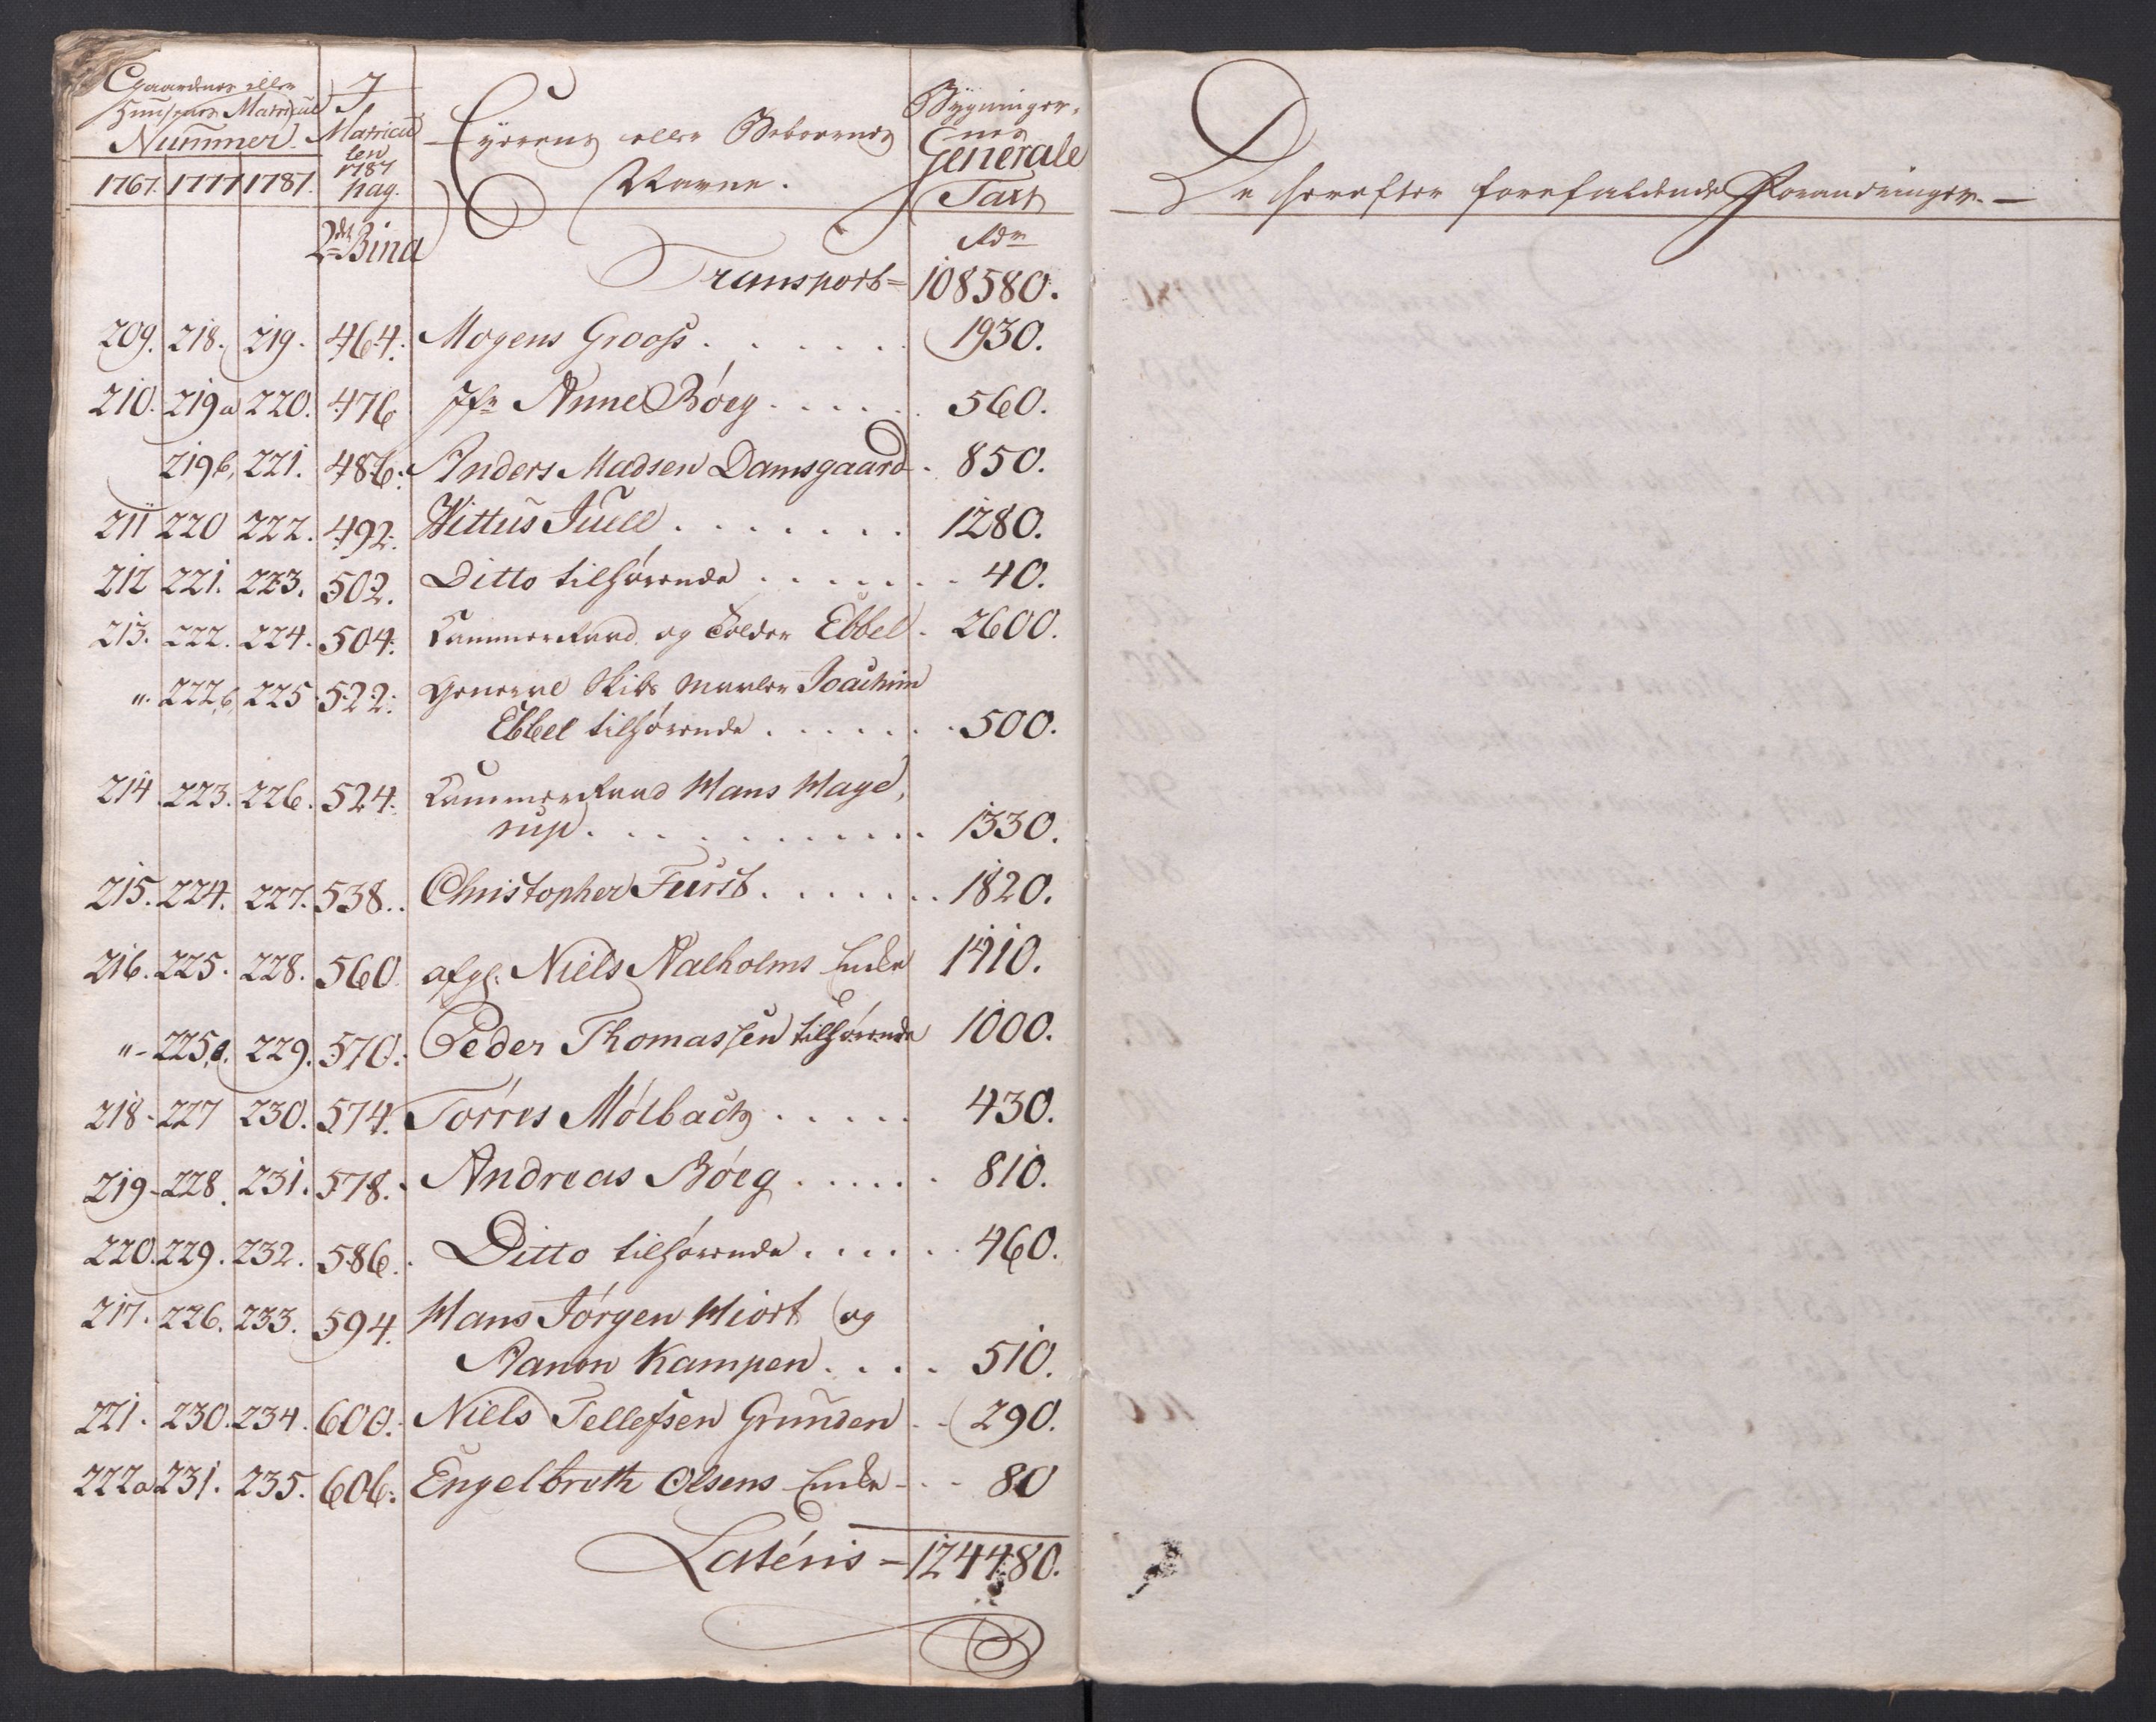 Gaardenes eller
Huusenes Matricul
Nummer.
1767. 1777 1787.
I
Matricu
len
1787
pag.
Eyerens eller Beboerens
Navne.
Bygninger,
nes
Generale
Taxt
2det Bind Rdr
Transport = 108580.
209. 218. 219. 464. Mogens Grooss . . . . . . 1930.
210. 219a 220. 476 Jfr Anne Bóeg . . . . . . 560.
219b, 221. 486. Anders Madsen Damsgaard . 850.
211 220 222. 492. Wittus Juell . . . . . . . 1280.
212 221. 223. 502. Ditto tilhørende . . . . . . . 40.
213. 222. 224. 504. Kammerraad og Tolder Ebbel . 2600.
". 222,b, 225 522. General Krigs Maaler Joachim
Ebbel tilhørende . . . . . . . 500.
214. 223. 226. 524. Kammerraad Hans Hage,
rup . . . . . . . . . . . 1330.
215. 224. 227. 538. Christopher Furst . . . . . . . 1820.
216. 225. 228. 560. afg: Niels Aalholms Enke 1410.
"- 225,a. 229. 570. Peder Thomassen tilhørende 1000.
218 - 227 230. 574. Tórres Mólbach . . . . . 430.
219 - 228. 231. 578. Andreas Bóeg . . . . . . 810.
220. 229. 232. 586. Ditto tilhørende . . . . . . 460.
217. 226. 233. 594. Hans Jórgen Hiort og
Aanon Kampen . . . . 510.
221. 230. 234. 600. Niels Tellefsen Grunden . . 290.
222a 231. 235. 606. Engelbreth Olsens Enke - . - 80
Latéris = 124480.
De herefter forefaldende Forandringer. —